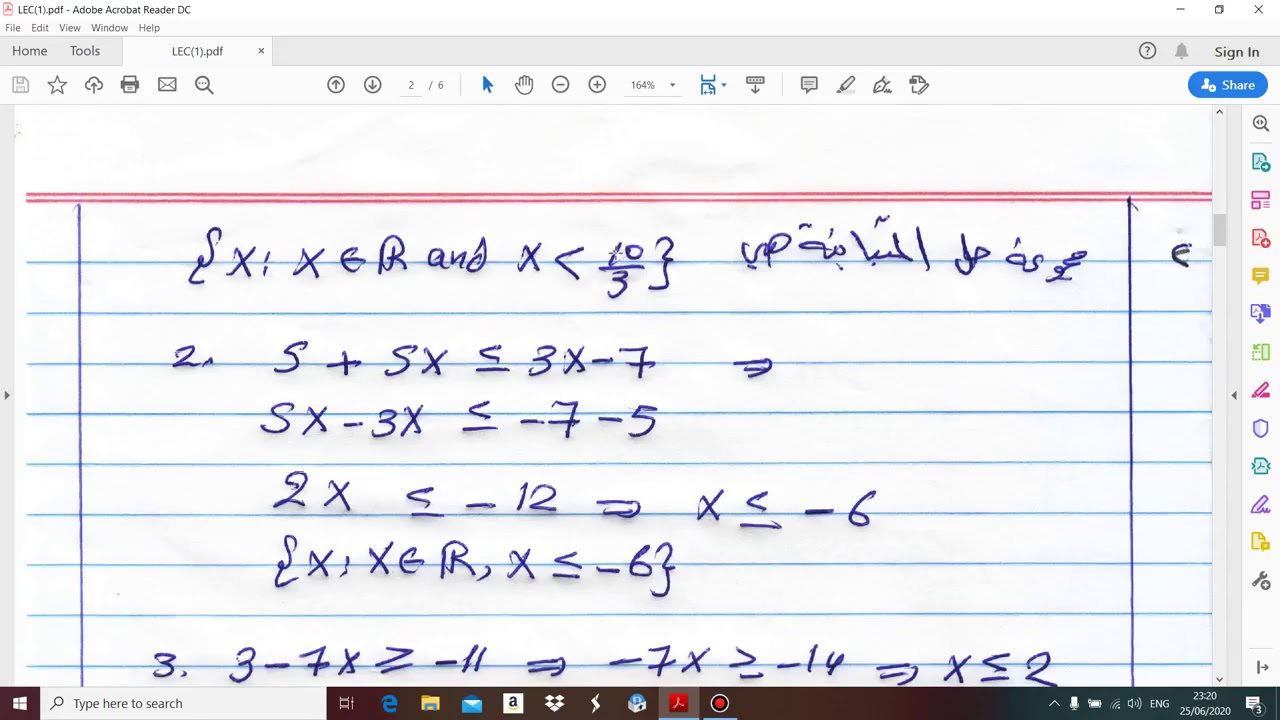 LEC(1).pdf - Adobe Acrobat Reader DC
File Edit View Window Help
Home Tools LEC(1).pdf × Sign In
2 / 6 164% Share
{x: x ∈ ℝ and x < 10/3} مجموعة حل المتباينة هي
2. 5 + 5x ≤ 3x - 7 ⇒
5x - 3x ≤ -7 - 5
2x ≤ -12 ⇒ x ≤ -6
{x: x ∈ ℝ, x ≤ -6}
3. 3 - 7x ≥ -11 ⇒ -7x ≥ -14 ⇒ x ≤ 2
Type here to search ENG 23:20
25/06/2020 3